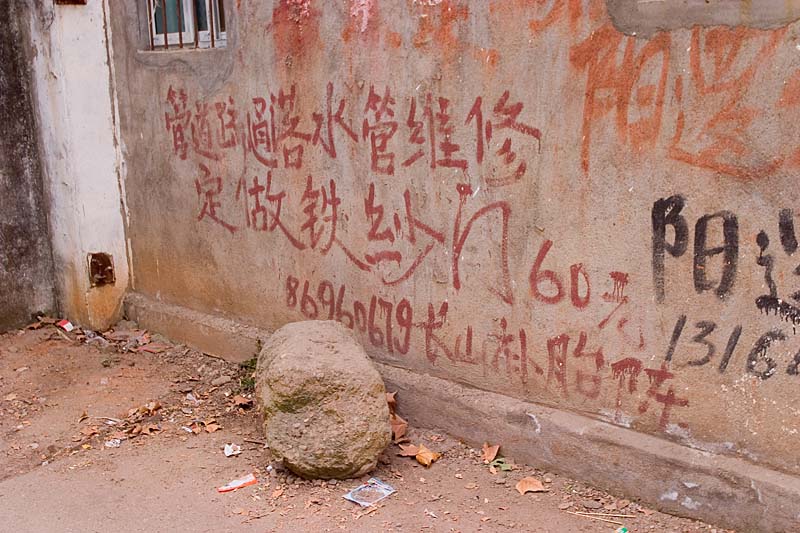 管道疏通落水管维修
定做铁纱门 60元
86960679 长山补胎
阳
阳
1316